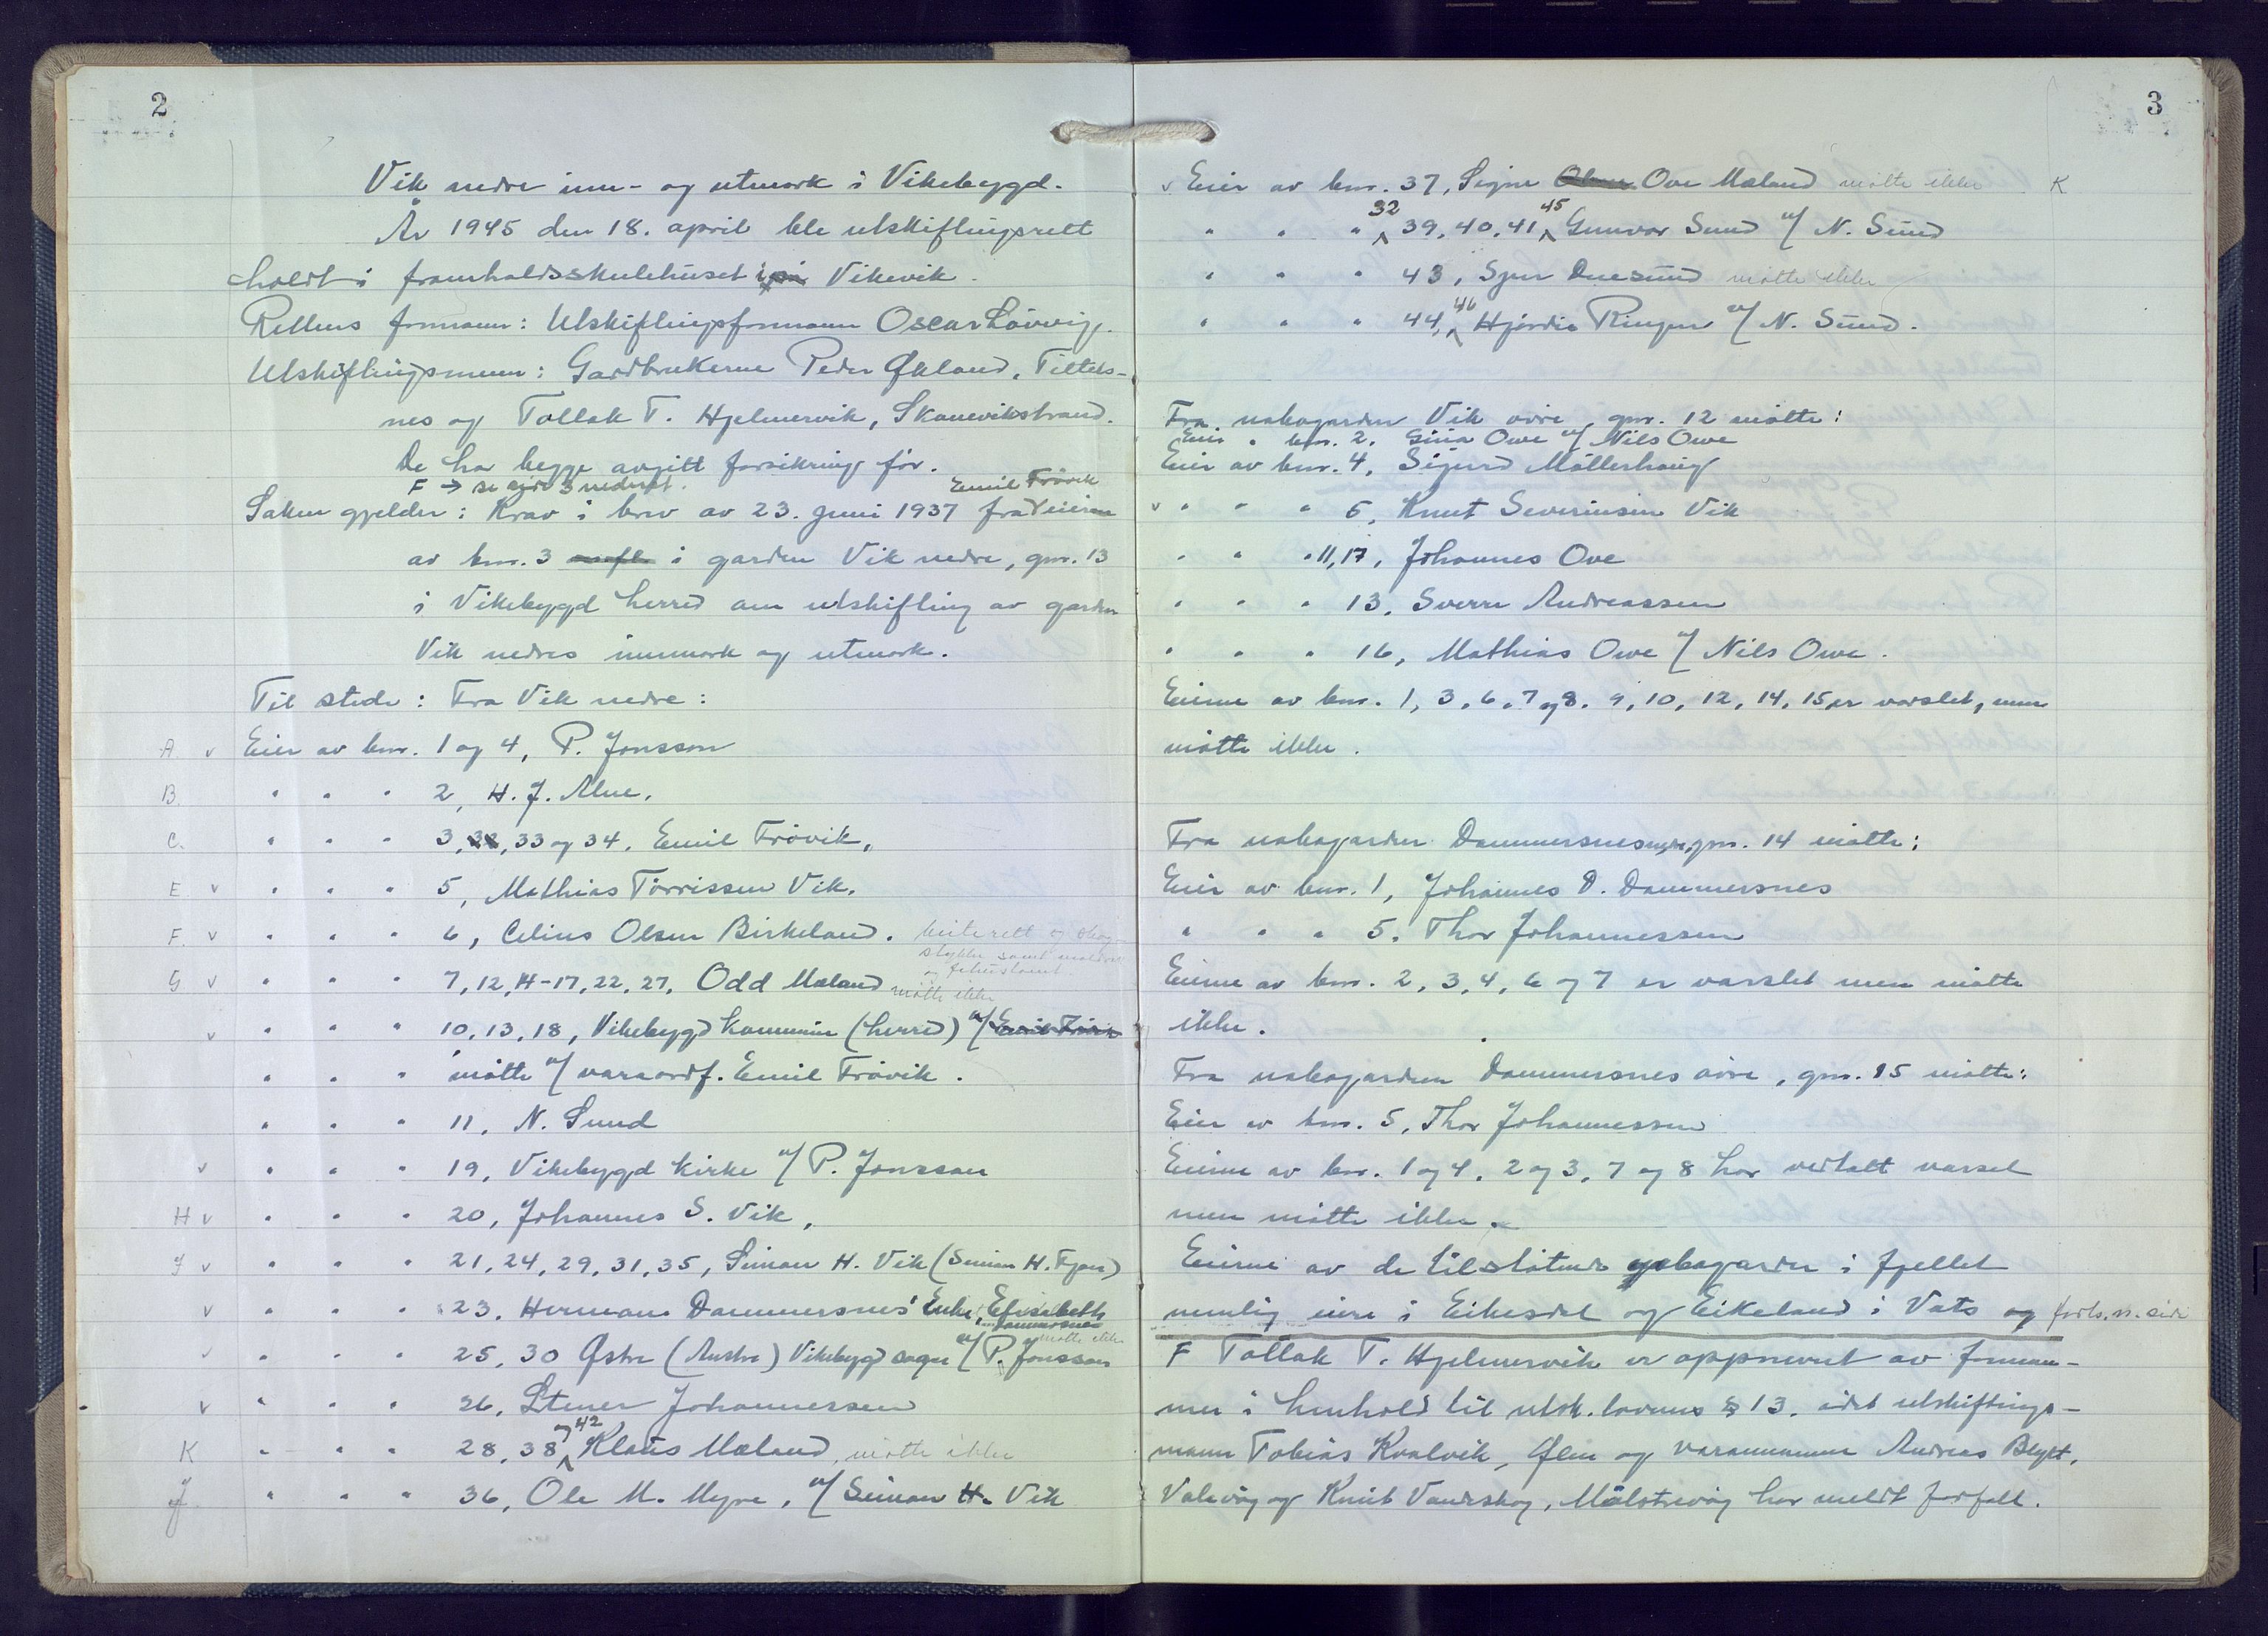 2
Vik nedre inn- og utmark i Vikebygd.
År 1945 den 18. april ble utskiftingsrett
holdt i framhaldsskulehuset i på Vikevik.
Rettens formann: Utskiftingsformann Oscar Løvvig.
Utskiftingsmenn: Gardbrukerne Peder Økland, Tittels-
nes og Tollak T. Hjelmervik, Skånevikstrand.
De ha begge avgitt forsikring før.
F → se side 3 nederst.
Emil Trövik
Saken gjelder: Krav i brev av 23. juni 1937 fra eieren
av bnr. 3 i garden Vik nedre, gnr. 13
i Vikebygd herred om utskifting av garden
Vik nedres innmark og utmark.
Til stede: Fra Vik nedre:
A. v Eier av bnr. 1 og 4, P. Jonsson
B. " " " 2, H. J. Alne.
C. " " " 3, 32, 33 og 34. Emil Trövik,
E v " " " 5, Mathias Törrissen Vik.
F. v " " " 6, Celius Olsen Birkeland. beiterett og skog-
stykke samt
G v " " " 7, 12, 14-17, 22, 27, Odd Mæland møtte ikke
v " " " 10, 13, 18, Vikebygd kommune (herred) v/ Emil Trövik
" " " møtte v/ varaordf. Emil Trövik.
" " " 11. N. Sund
v " " " 19, Vikebygd kirke v/ P. Jonsson
H v " " " 20, Johannes S. Vik,
J v " " " 21, 24, 29, 31, 35, Simon H. Vik (Simon H. Fjon)
v " " " 23. Herman Dommersnes' Enke, Elisabeth
Dommersnes
møtte ikke
v " " " 25, 30 Østre (Austre) Vikebygd sogn v/ P. Jonsson
v " " " 26, Stener Johannessen
K " " " 28, 38 og 42 Klaus Mæland, møtte ikke
J " " " 36, Ole M. Myre, v/ Simon H. Vik
3
v Eier av bnr. 37, Signe Ove Mæland møtte ikke K
" " " 32 39, 40, 41 45 Gunvor Sund v/ N. Sund
" " " 43, Sjur Duesund møtte ikke
" " " 44, 46 Hjördis Ringen v/ N. Sund.
Fra nabogarden Vik övre, gnr. 12 møtte:
Eier " bnr. 2. Gina Owe v/ Nils Owe
Eier av bnr. 4, Sigurd Möllerhaug
v " " " 5, Knut Severinsen Vik
" " " 11, 17, Johannes Ove
" " " 13, Sverre Andreassen
" " " 16, Mathias Owe v/ Nils Owe.
Eierne av bnr. 1, 3, 6, 7 og 8, 9, 10, 12, 14, 15 er varslet, men
møtte ikke.
Fra nabogarden Dommersnes nedre, gnr. 14 møtte:
Eier av bnr. 1, Johannes D. Dommersnes
" " " 5. Thor Johannessen
Eierne av bnr. 2, 3, 4, 6 og 7 er varslet men møtte
ikke.
Fra nabogarden Dommersnes övre, gnr. 15 møtte:
Eier av bnr. 5, Thor Johannessen
Eierne av bnr. 1 og 4, 2 og 3, 7 og 8 har vedtatt varsel
men møtte ikke.
Eierne av de tilstøtende nabogarder i fjellet
nemlig eiere i Eikesdal og Eikeland i Vats og forts. n. side
F Tollak T. Hjelmervik er oppnevnt av forman-
nen i henhold til utsk. lovens § 13. idet utskiftings-
mann Tobias Kvalvik, Ølen og varamennene Andreas Blykt,
Valevåg og Knut Vandskog, Målstrevåg har meldt forfall.